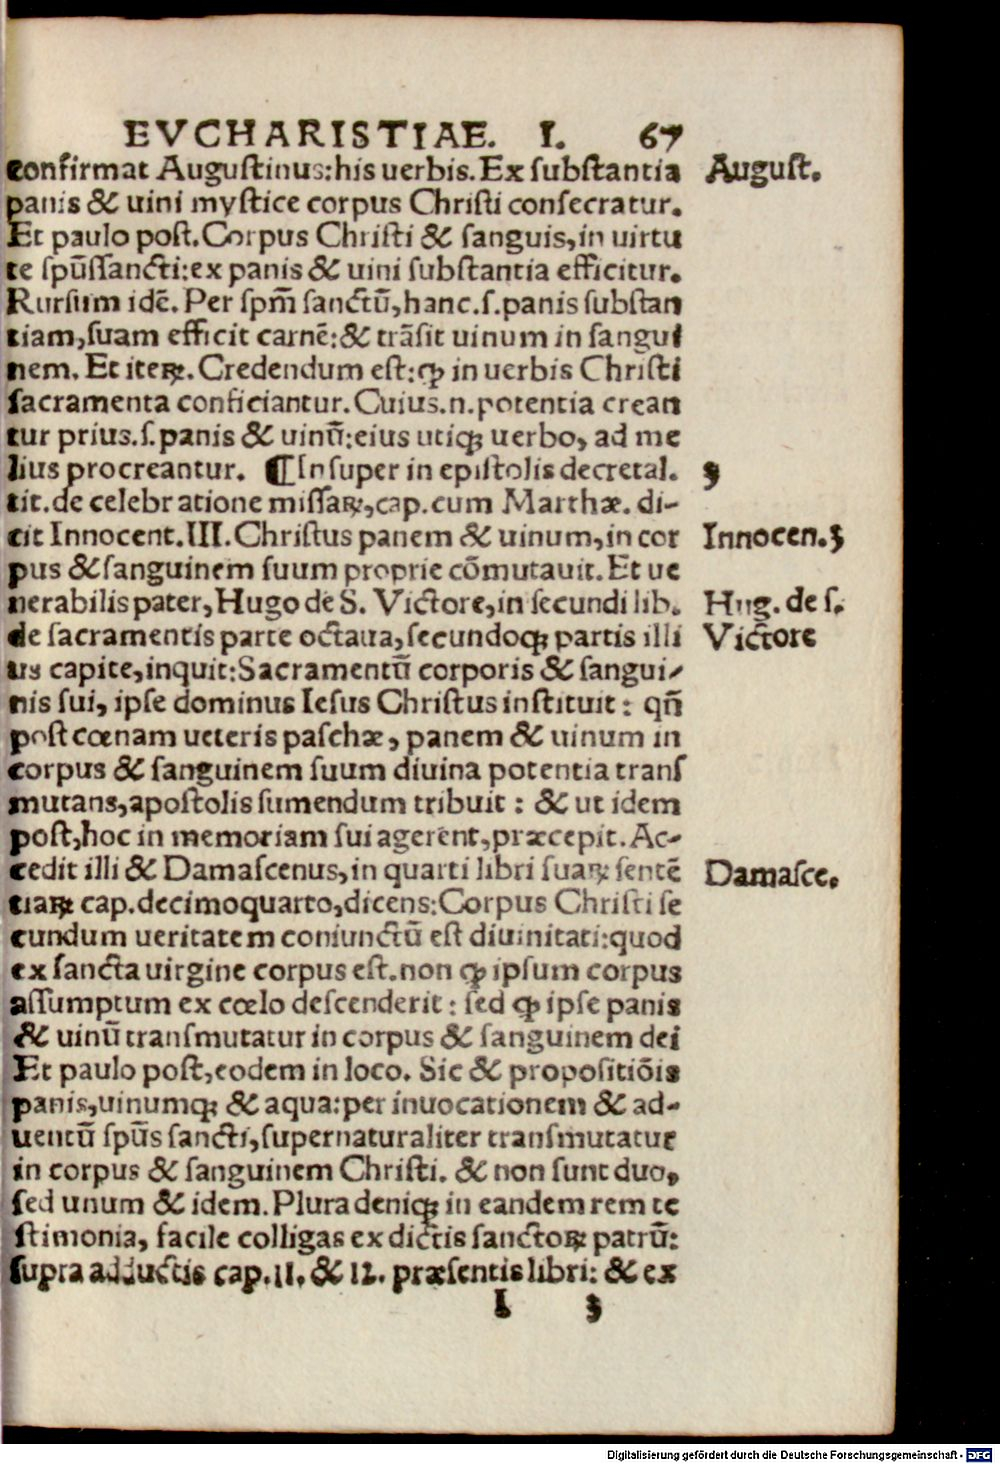 EVCHARISTIAE. I. 67
confirmat Augustinus: his uerbis. Ex substantia August.
panis & uini mystice corpus Christi consecratur.
Et paulo post. Corpus Christi & sanguis, in uirtu
te spūssancti: ex panis & uini substantia efficitur.
Rursum idē. Per spm̄ sanctū, hanc .s. panis substan
tiam, suam efficit carnē: & trāsit uinum in sangui
nem. Et iteꝝ. Credendum est: ꝙ in uerbis Christi
sacramenta conficiantur. Cuius .n. potentia crean
tur prius .s. panis & uinū: eius utiqꝫ uerbo, ad me
lius procreantur. ¶ Insuper in epistolis decretal. 3
tit. de celebratione missaꝝ, cap. cum Marthæ. di-
cit Innocent. III. Christus panem & uinum, in cor Innocen. 3
pus & sanguinem suum proprie cōmutauit. Et ue
nerabilis pater, Hugo de S. Victore, in secundi lib. Hug. de s.
de sacramentis parte octaua, secundoqꝫ partis illi Victore
us capite, inquit: Sacramentū corporis & sangui-
nis sui, ipse dominus Iesus Christus instituit: qn̄
post cœnam ueteris paschæ, panem & uinum in
corpus & sanguinem suum diuina potentia trans
mutans, apostolis sumendum tribuit: & ut idem
post, hoc in memoriam sui agerent, præcepit. Ac-
cedit illi & Damascenus, in quarti libri suaꝝ sentē Damasce.
tiaꝝ cap. decimoquarto, dicens: Corpus Christi se
cundum ueritatem coniunctū est diuinitati: quod
ex sancta uirgine corpus est. non ꝙ ipsum corpus
assumptum ex cœlo descenderit: sed ꝙ ipse panis
& uinū transmutatur in corpus & sanguinem dei
Et paulo post, eodem in loco. Sic & propositiōis
panis, uinumqꝫ & aqua: per inuocationem & ad-
uentū spūs sancti, supernaturaliter transmutatur
in corpus & sanguinem Christi. & non sunt duo,
sed unum & idem. Plura deniqꝫ in eandem rem te
stimonia, facile colligas ex dictis sanctoꝝ patrū:
supra adductis cap. 11. & 12. præsentis libri: & ex
I 3
Digitalisierung gefördert durch die Deutsche Forschungsgemeinschaft - DFG